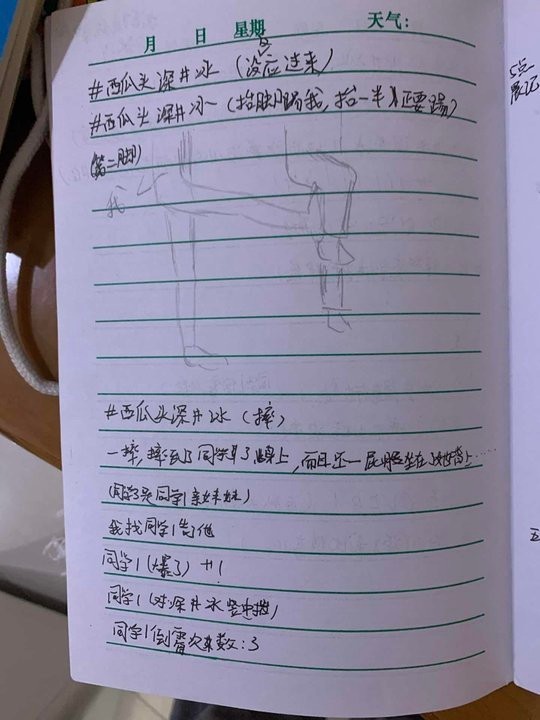 月 日 星期 天气:
#西瓜头深井冰（没反应过来）
#西瓜头深井冰（抬脚踢我，抬一半，正要踢）
（第二脚）
我
#西瓜头深井冰（摔）
一摔，摔到了同学3了身上，而且还一屁股坐在了她背上……
（同学3是同学1亲妹妹）
我找同学1告他
同学1（爆了）+1
同学1（对深井冰竖中指）
同学1倒霉次数：3
5点